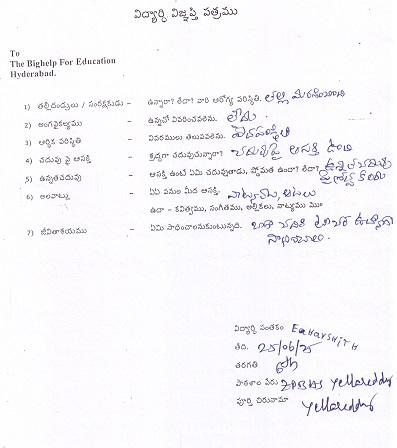 విద్యార్థి విజ్ఞప్తి పత్రము
To
The Bighelp For Education
Hyderabad.
1) తల్లిదండ్రులు / సంరక్షకుడు – ఉన్నారా? లేదా? వారి ఆరోగ్య పరిస్థితి. తల్లి
2) అంగవైకల్యము – ఉన్నచో వివరించవలెను. లేదు
3) ఆర్థిక పరిస్థితి – వివరములు తెలుపవలెను.
4) చదువు పై ఆసక్తి – శ్రద్ధగా చదువుచున్నారా? చదువుపై ఆసక్తి ఉంది
5) ఉన్నతచదువు – ఆసక్తి ఉంటే ఏమి చదువుతాడు, స్తోమత ఉందా? లేదా?
6) అలవాట్లు – ఏఏ పనుల మీద ఆసక్తి. ఆటలు
ఉదా – కవిత్వము, సంగీతము, అల్లికలు, నాట్యము మొ॥
7) జీవితాశయము – ఏమి సాధించాలనుకుంటున్నది. బాగా చదివి
సాధించాలి.
విద్యార్థి సంతకం E. HARSHITH
తేది. 25/06/25
తరగతి 6th
పాఠశాల పేరు ZPBHS Yellareddy
పూర్తి చిరునామా Yellareddy